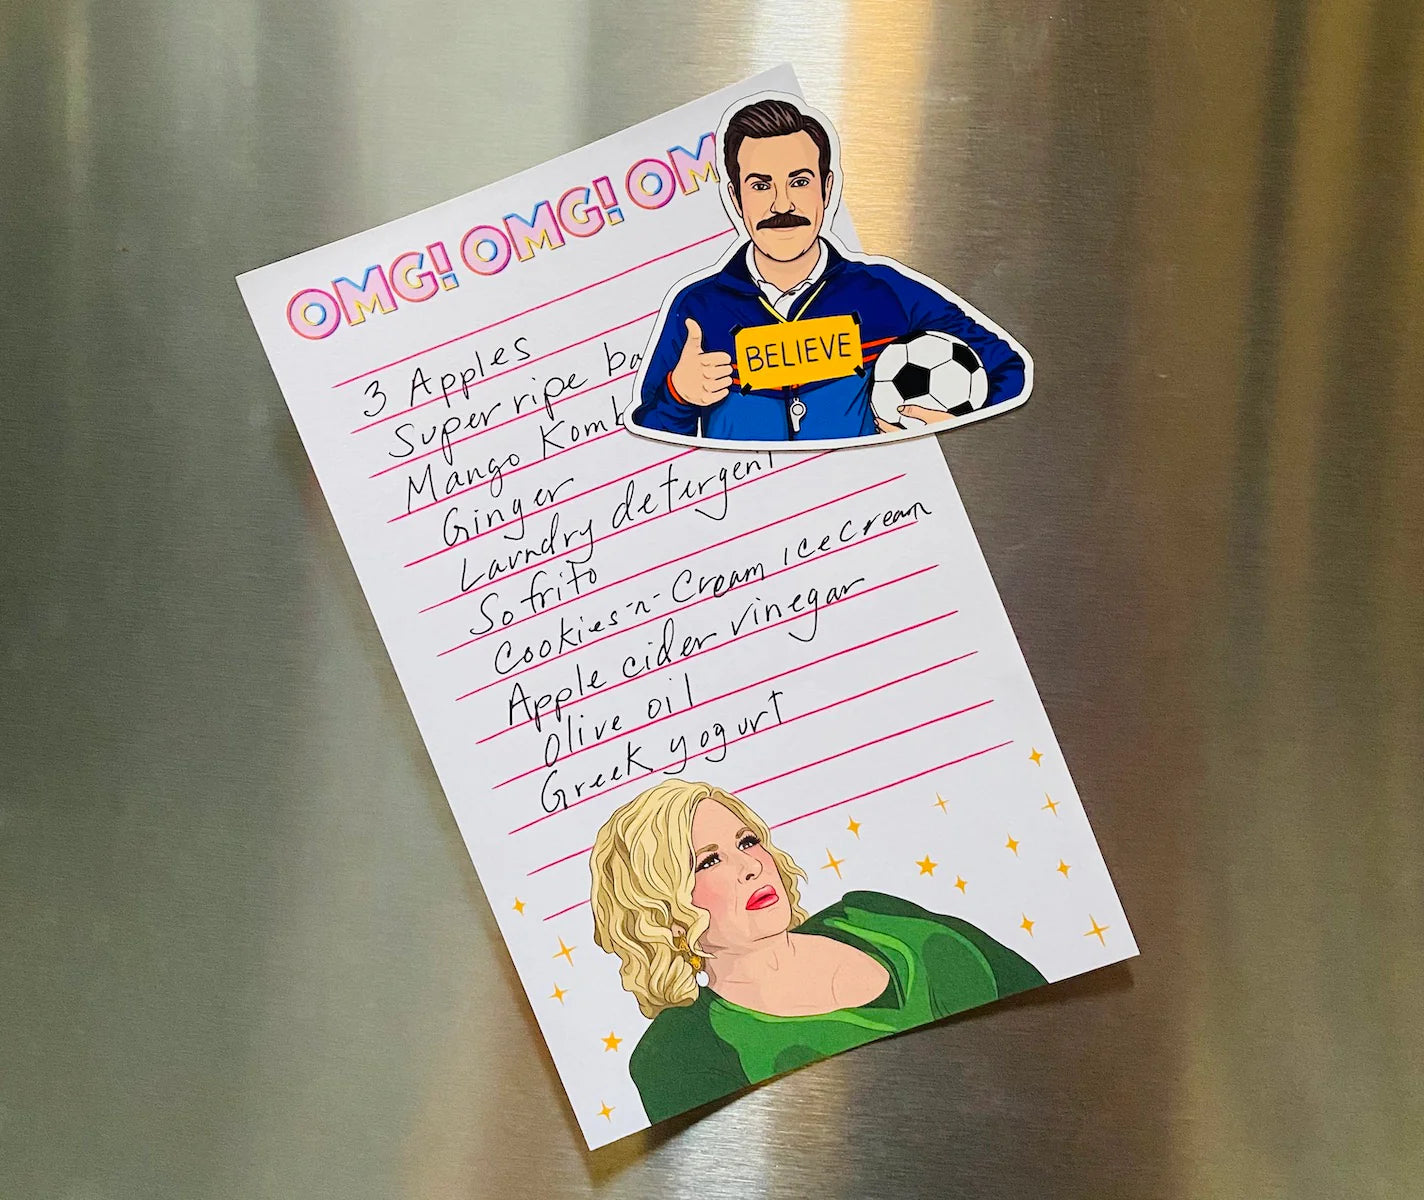 OMG! OMG! OM
BELIEVE
3 Apples
Super ripe ba
Mango Komb
Ginger
Laundry detergent
Sofrito
Cookies-n-Cream ice cream
Apple cider vinegar
Olive oil
Greek yogurt